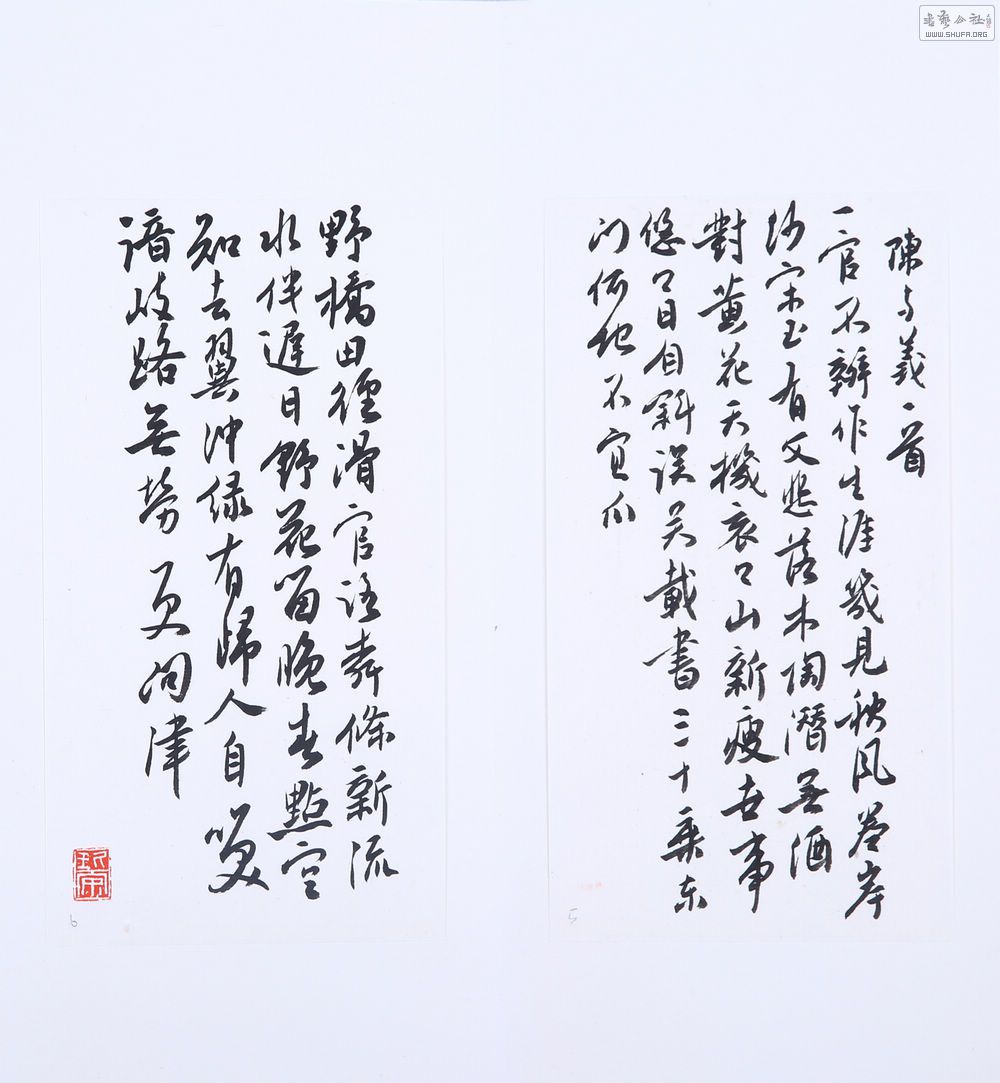 書藝公社
WWW.SHUFA.ORG
陳与義一首
一官不辦作生涯幾見秋風卷岸
沙宋玉有文悲落木陶潛無酒
對黃花天機衮々山新瘦世事
悠々日自斜誤矣載書三十乘東
门何地不宜瓜
5
野橋田徑滑官舞條新流
水伴遲日野花留晚春點空
知去翼沖緑有歸人自笑
諳歧路無勞更问津
6